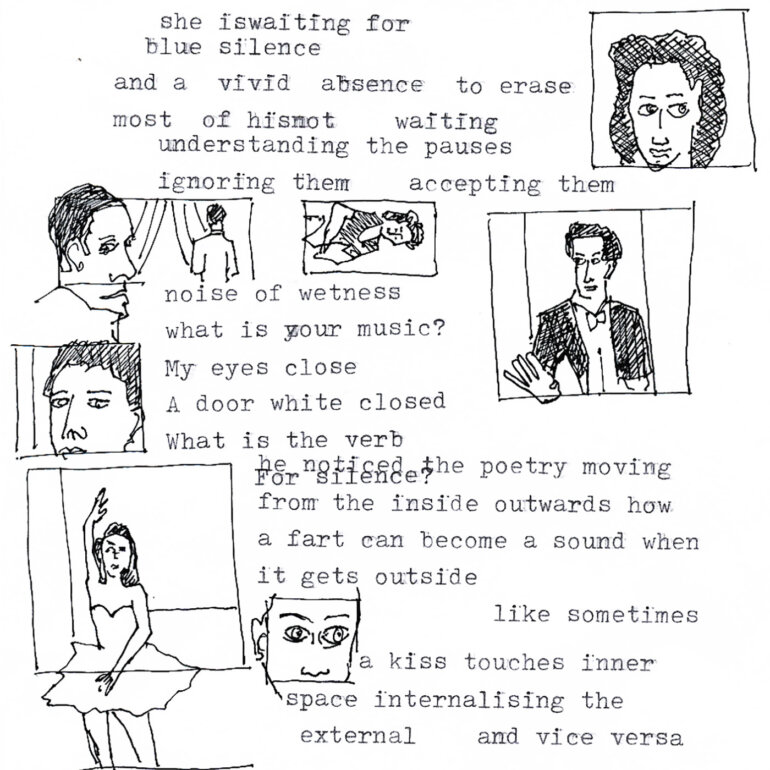 she iswaiting for
blue silence
and a vivid absence to erase
most of hisnot waiting
understanding the pauses
ignoring them accepting them
noise of wetness
what is your music?
My eyes close
A door white closed
What is the verb
For silence?
he noticed the poetry moving
from the inside outwards how
a fart can become a sound when
it gets outside
like sometimes
a kiss touches inner
space internalising the
external and vice versa